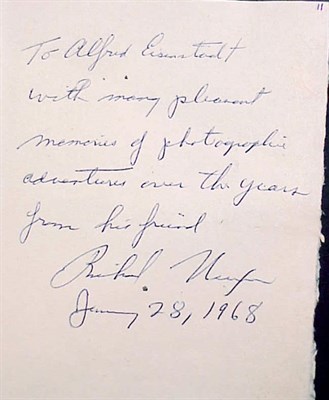 To Alfred Eisenstadt
with many pleasant
memories of photographic
adventures over the years
from his friend
Richard
January 28, 1968